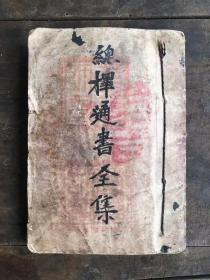 總擇通書全集